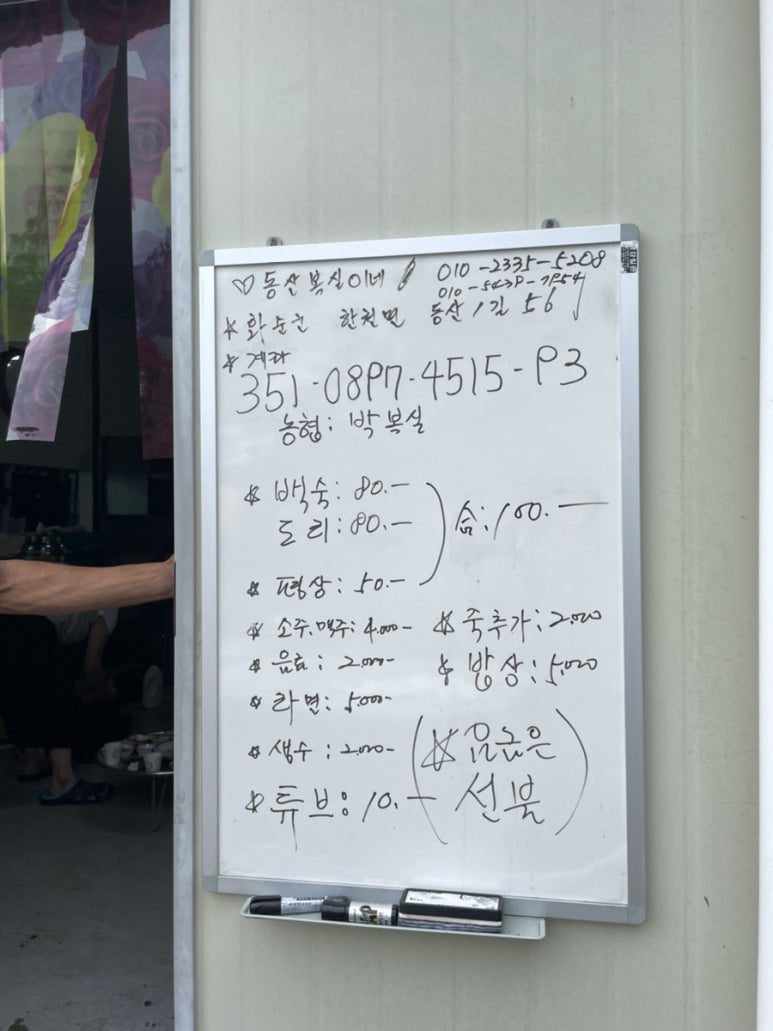 ♡ 동산복실이네 010-2335-5208
010-5439-7954
☆ 화순군 한천면 동산1길 56
☆ 계좌
351-0897-4515-93
농협: 박복실
☆ 백숙: 80.— 합: 100.—
도리: 80.—
☆ 평상: 50.—
☆ 소주.맥주: 4.000- ☆ 죽추가: 2.000
☆ 음료: 2.000- ☆ 밥상: 5.000
☆ 라면: 5.000-
☆ 생수: 2.000- (☆ 요금은
☆ 튜브: 10.— 선불)